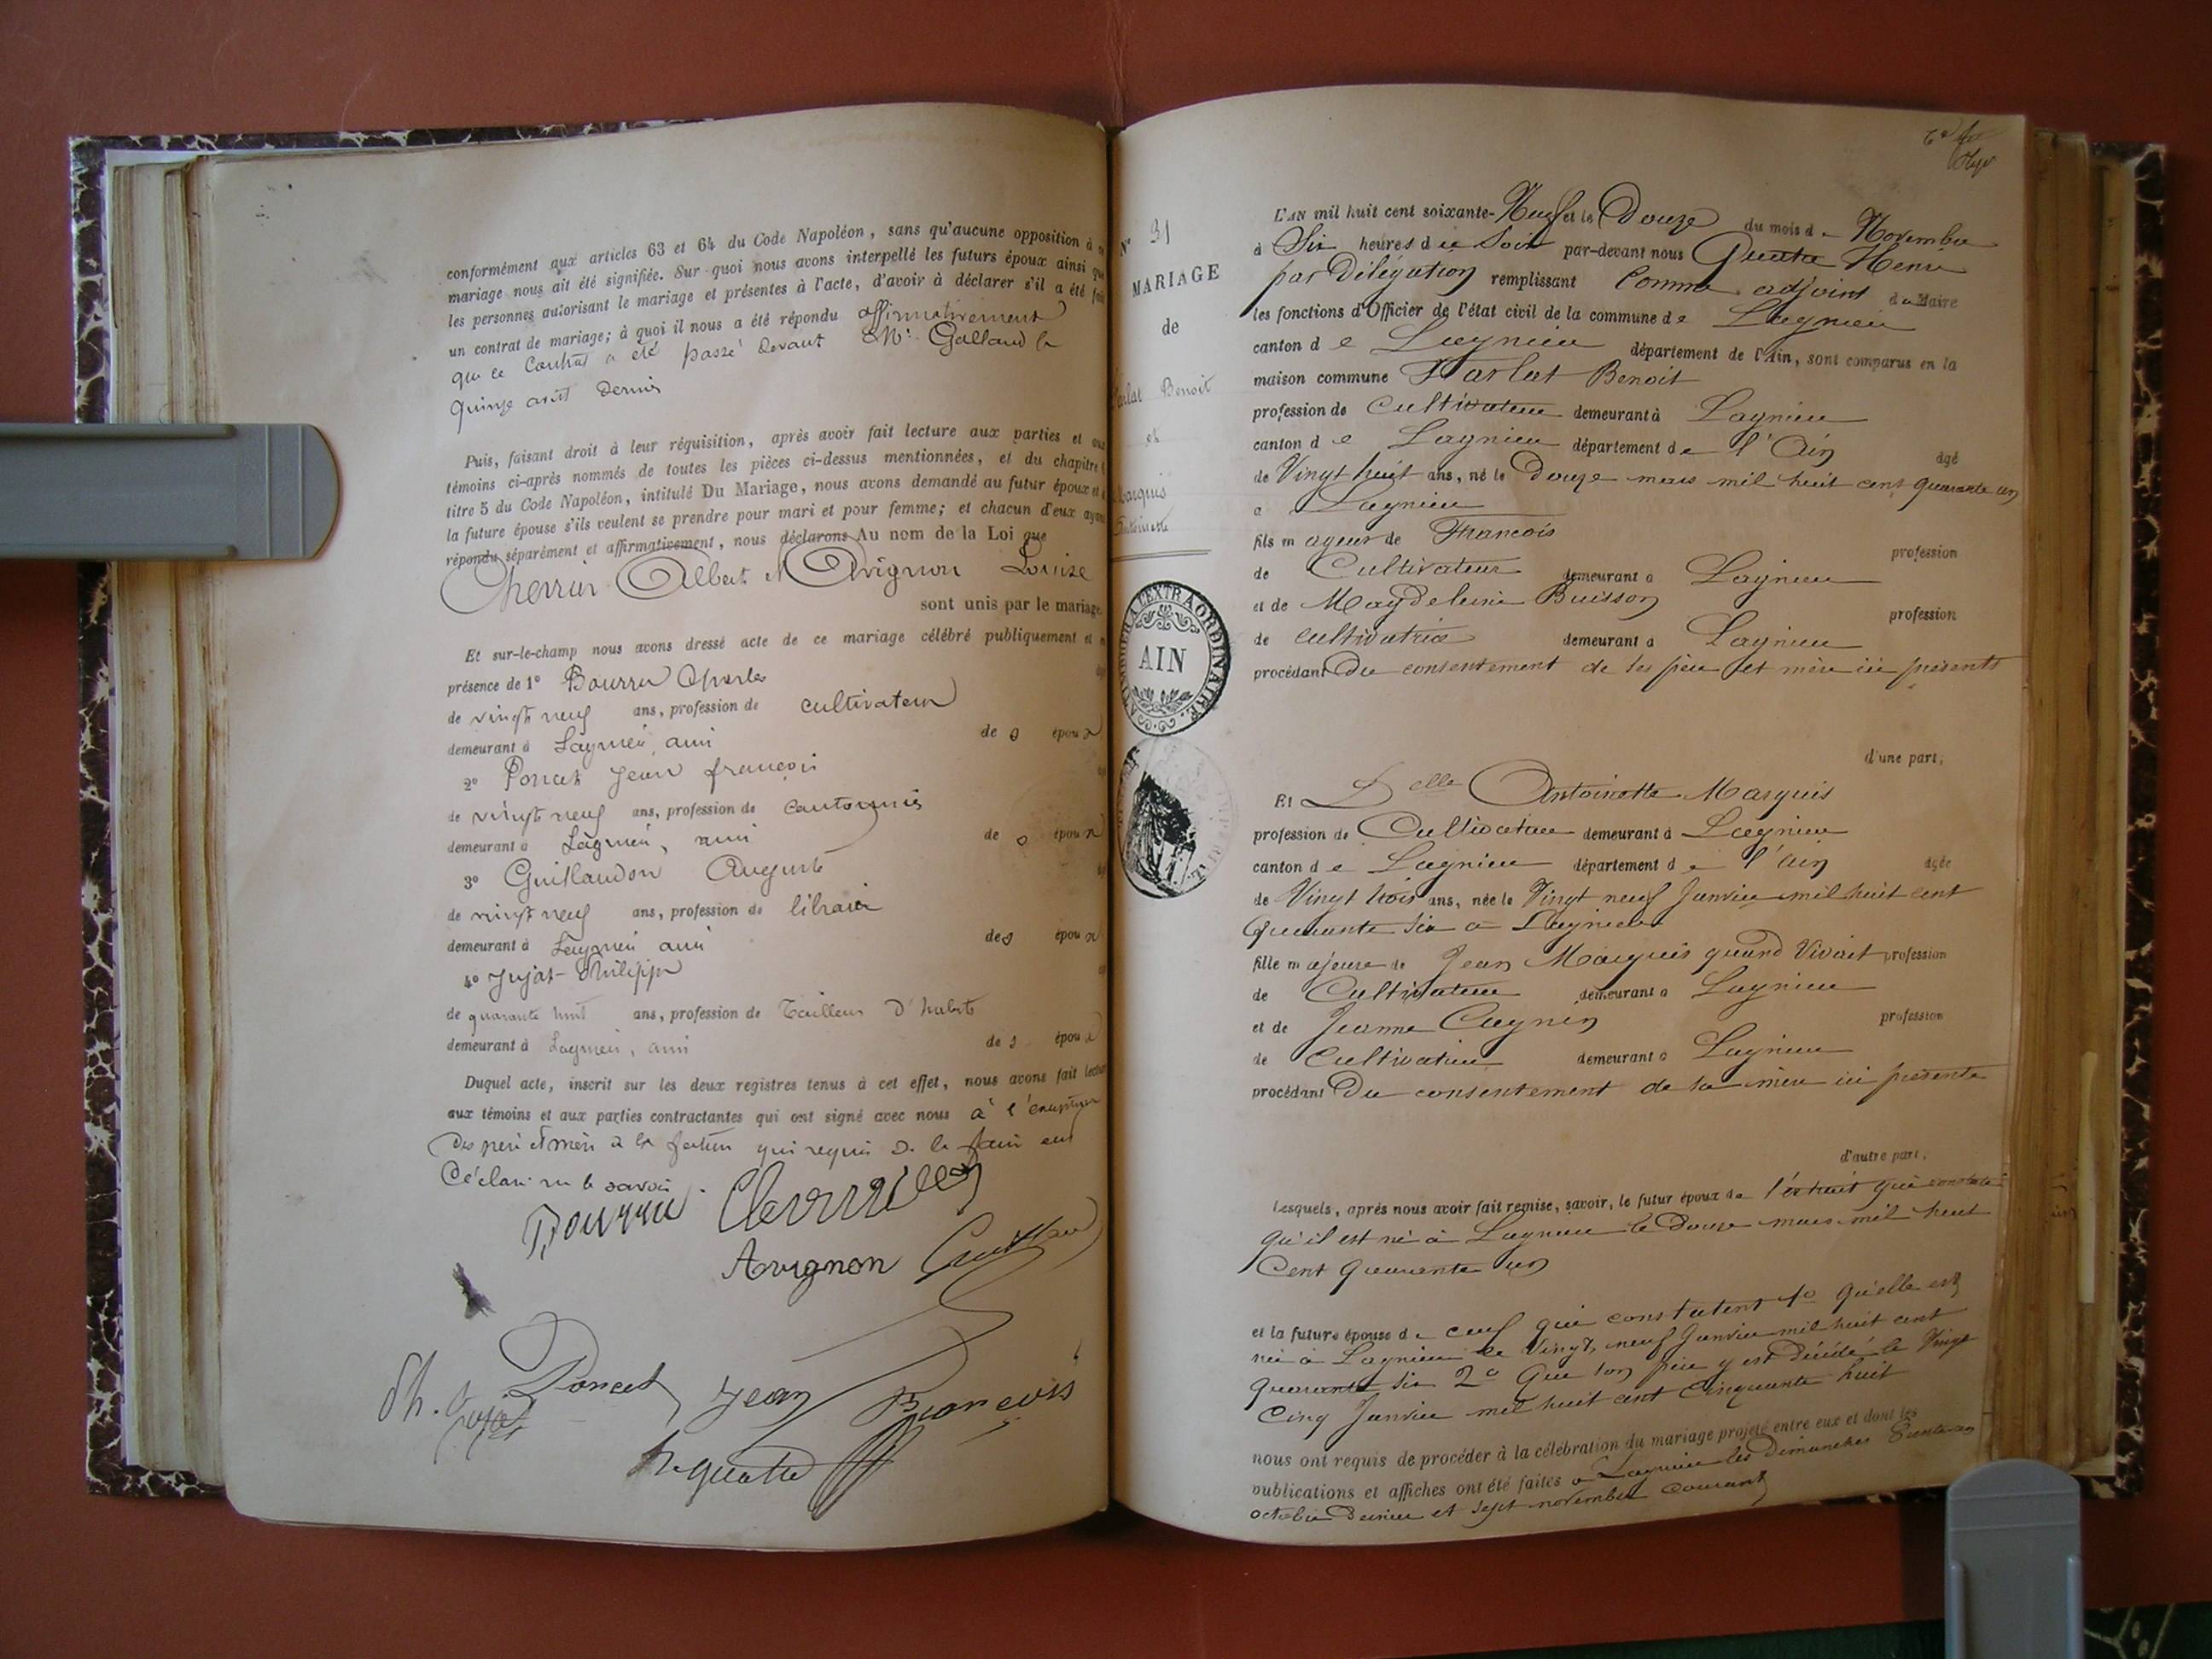 conformément aux articles 63 et 64 du Code Napoléon, sans qu'aucune opposition à ce
mariage nous ait été signifiée. Sur quoi nous avons interpellé les futurs époux ainsi que
les personnes autorisant le mariage et présentes à l'acte, d'avoir à déclarer s'il a été fait
un contrat de mariage; à quoi il nous a été répondu affirmativement
que ce contrat a été passé devant Me Galland le
quinze août dernier
Puis, faisant droit à leur réquisition, après avoir fait lecture aux parties et aux
témoins ci-après nommés de toutes les pièces ci-dessus mentionnées, et du chapitre
titre 5 du Code Napoléon, intitulé Du Mariage, nous avons demandé au futur époux et à
la future épouse s'ils veulent se prendre pour mari et pour femme; et chacun d'eux ayant
répondu séparément et affirmativement, nous déclarons Au nom de la Loi que
Cherrier Albert et Avignon Louise
sont unis par le mariage.
Et sur-le-champ nous avons dressé acte de ce mariage célébré publiquement et en
présence de 1° Bourru Charles
de vingt neuf ans, profession de cultivateur
demeurant à Lagnieu, ami des époux
2° Poncet Jean françois
de vingt neuf ans, profession de cantonnier
demeurant à Lagnieu, ami des époux
3° Guillaudon Auguste
de vingt neuf ans, profession de libraire
demeurant à Lagnieu ami des époux
4° Jujat Philippe
de quarante huit ans, profession de Tailleur d'habits
demeurant à Lagnieu, ami des époux
Duquel acte, inscrit sur les deux registres tenus à cet effet, nous avons fait lecture
aux témoins et aux parties contractantes qui ont signé avec nous à l'exception
des père et mère de la future qui requis de le faire ont
déclaré ne le savoir.
Bourru
Avignon
Poncet Jean François
Ph. Jujat
h quatre
N° 31
MARIAGE
de
Tarlat Benoit
et
Marquis
Antoinette
TIMBRE A L'EXTRAORDINAIRE
AIN
L'AN mil huit cent soixante-Neuf et le Douze du mois de Novembre
à Six heures du Soir par-devant nous Quatre Henri
par Délégation remplissant comme adjoint du Maire
les fonctions d'Officier de l'état civil de la commune de Lagnieu
canton de Lagnieu département de l'Ain, sont comparus en la
maison commune Tarlat Benoit
profession de Cultivateur demeurant à Lagnieu
canton de Lagnieu département de l'Ain âgé
de Vingt huit ans, né le Douze mars mil huit cent quarante un
a Lagnieu
fils majeur de Francois profession
de Cultivateur demeurant a Lagnieu
et de Magdeleine Buisson profession
de cultivatrice demeurant a Lagnieu
procédant Du consentement de ses père et mère ici présents
d'une part,
Et Delle Antoinette Marquis
profession de Cultivatrice demeurant à Lagnieu
canton de Lagnieu département de l'Ain âgée
de Vingt trois ans, née le Vingt neuf Janvier mil huit cent
Quarante Six a Lagnieu
fille majeure de Jean Marquis quand Vivait profession
de Cultivateur demeurant a Lagnieu
et de Jeanne Cagnin profession
de Cultivatrice demeurant a Lagnieu
procédant Du consentement de sa mère ici présente
d'autre part,
Lesquels, après nous avoir fait remise, savoir, le futur époux de l'extrait qui constate
qu'il est né à Lagnieu le Douze mars mil huit
Cent Quarante un
et la future épouse de ceux qui constatent 1° Qu'elle est
née à Lagnieu le Vingt neuf Janvier mil huit cent
quarante six 2° Que son père y est Décédé le Vingt
Cinq Janvier mil huit cent cinquante huit
nous ont requis de procéder à la célébration du mariage projeté entre eux et dont les
publications et affiches ont été faites a Lagnieu les Dimanches trente un
octobre Dernier et sept novembre courant